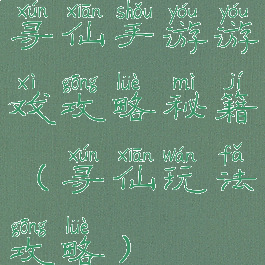 xún xiān shǒu yóu yóu
寻仙手游游
xì gōng lüè mì jí
戏攻略秘籍
xún xiān wán fǎ
(寻仙玩法
gōng lüè
攻略)